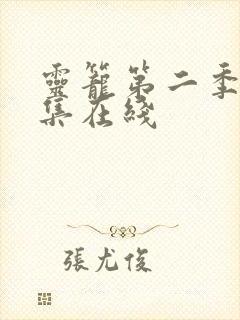 靈籠第二季
集在綫
張尤俊